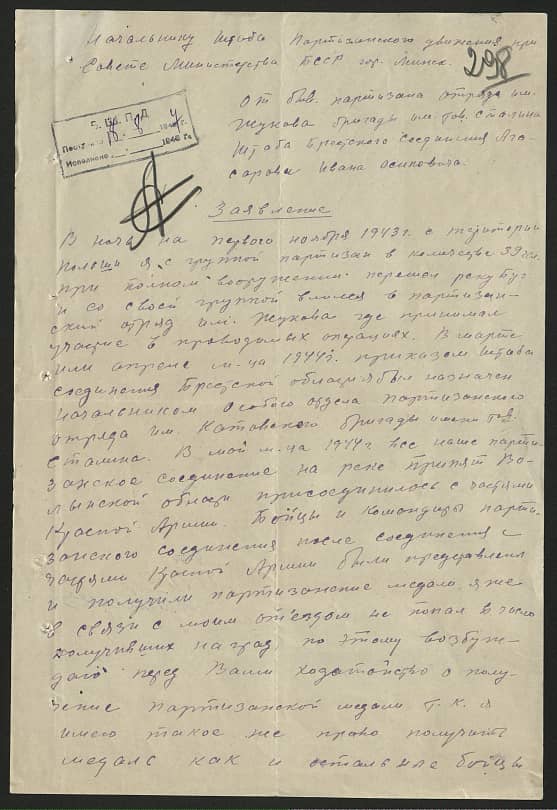 Начальнику Штаба Партизанского движения при
Совете Министерства БССР гор. Минск.
298
От быв. партизана отряда им.
Жукова бригады им. тов. Сталина
Штаба Брестского Соединения Ага-
сарова Ивана Осиповича.
Б. Ш. П. Д.
Поступ. 8 8 1947
Исполнено 194 г.
Заявление
В ночь на первого ноября 1943 г. с територии
Полощи я с группой партизан в количестве 39 чл.
при полном вооружении перешел реку Буг
и со своей группой влился в партизан-
ский отряд им. Жукова где принимал
участие в проводимых операциях. В марте
или апреле м-ца 1944 г. приказом штаба
соединения Брестской области я был назначен
начальником Особого отдела партизанского
отряда им. Катовского бригады имени тов.
Сталина. В мой м-ца 1944 г. все наше парти-
занское соединение на реке Припят Во-
лынской области присоединилось с частями
Красной Армии. Бойцы и командиры парти-
занского соединения после соединения с
частями Красной Армии были представлени
и получили партизанские медали, я же
в связи с моим от'ездом не попал в число
получивших наград, по этому возбуж-
даю перед Вами ходатойство о полу-
чение партизанской медали т. к. я
имею такое же право получить
медаль как и остальние бойцы